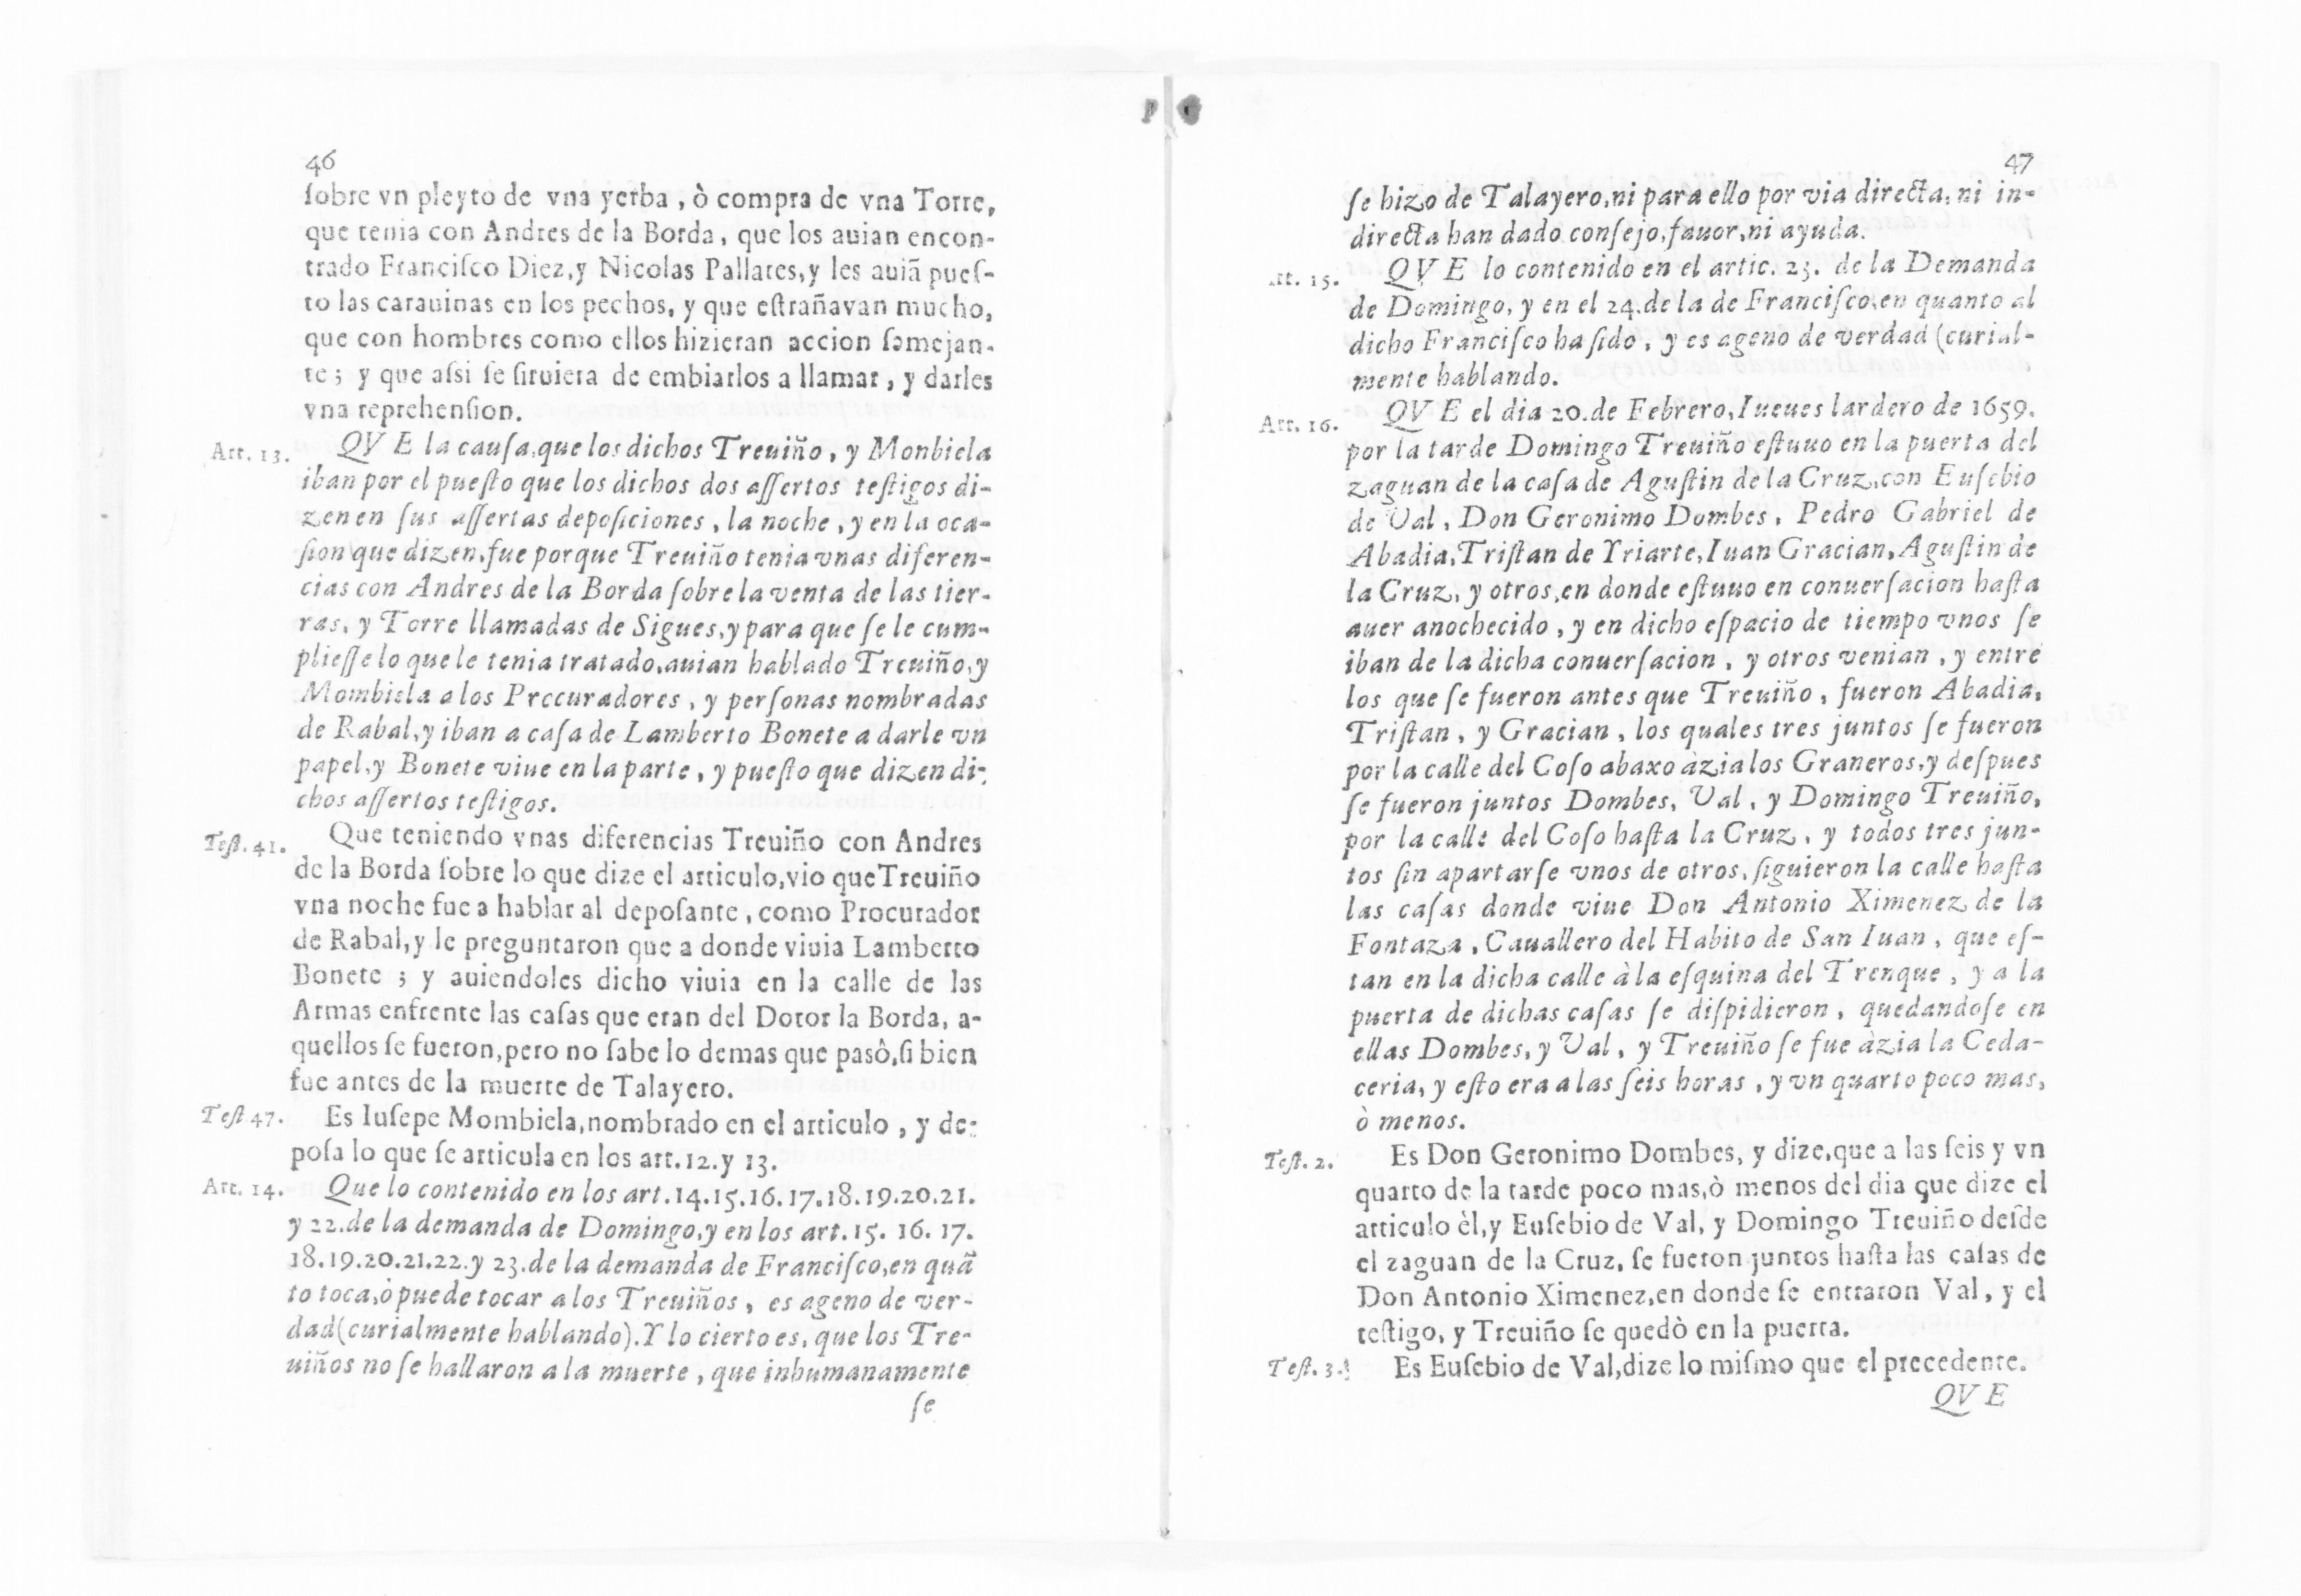 46
ſobre vn pleyto de vna yerba, ò compra de vna Torre,
que tenia con Andres de la Borda, que los auian encon-
trado Franciſco Diez,y Nicolas Pallares,y les auiã pueſ-
to las carauinas en los pechos, y que eſtrañavan mucho,
que con hombres como ellos hizieran accion ſemejan-
te; y que aſsi ſe ſiruiera de embiarlos a llamar, y darles
vna reprehenſion.
Art. 13. QVE la cauſa,que los dichos Treuiño, y Monbiela
iban por el pueſto que los dichos dos aſſertos teſtigos di-
zen en ſus aſſertas depoſiciones, la noche, y en la oca-
ſion que dizen,fue porque Treuiño tenia vnas diferen-
cias con Andres de la Borda ſobre la venta de las tier-
ras, y Torre llamadas de Sigues,y para que ſe le cum-
plieſſe lo que le tenia tratado,auian hablado Treuiño,y
Mombiela a los Precuradores, y perſonas nombradas
de Rabal,y iban a caſa de Lamberto Bonete a darle vn
papel,y Bonete viue en la parte, y pueſto que dizen di-
chos aſſertos teſtigos.
Teſt. 41. Que teniendo vnas diferencias Treuiño con Andres
de la Borda ſobre lo que dize el articulo,vio que Treuiño
vna noche fue a hablar al depoſante, como Procurador
de Rabal,y le preguntaron que a donde viuia Lamberto
Bonete; y auiendoles dicho viuia en la calle de las
Armas enfrente las caſas que eran del Dotor la Borda, a-
quellos ſe fueron,pero no ſabe lo demas que pasò,ſi bien
fue antes de la muerte de Talayero.
Teſt 47. Es Iuſepe Mombiela,nombrado en el articulo, y de-
poſa lo que ſe articula en los art.12.y 13.
Art. 14. Que lo contenido en los art.14.15.16.17.18.19.20.21.
y 22.de la demanda de Domingo,y en los art.15. 16. 17.
18.19.20.21.22.y 23.de la demanda de Franciſco,en quã
to toca,ò puede tocar a los Treuiños, es ageno de ver-
dad(curialmente hablando).Y lo cierto es, que los Tre-
uiños no ſe hallaron a la muerte, que inhumanamente
ſe
47
ſe hizo de Talayero,ni para ello por via directa, ni in-
directa han dado conſejo,fauor,ni ayuda.
Art. 15. QVE lo contenido en el artic. 23. de la Demanda
de Domingo, y en el 24.de la de Franciſco,en quanto al
dicho Franciſco ha ſido, y es ageno de verdad (curial-
mente hablando.
Art. 16. QVE el dia 20.de Febrero,Iueues lardero de 1659.
por la tarde Domingo Treuiño eſtuuo en la puerta del
zaguan de la caſa de Aguſtin de la Cruz,con Euſebio
de Val, Don Geronimo Dombes, Pedro Gabriel de
Abadia,Triſtan de Yriarte,Iuan Gracian,Aguſtin de
la Cruz, y otros,en donde eſtuuo en conuerſacion haſta
auer anochecido, y en dicho eſpacio de tiempo vnos ſe
iban de la dicha conuerſacion, y otros venian, y entre
los que ſe fueron antes que Treuiño, fueron Abadia,
Triſtan, y Gracian, los quales tres juntos ſe fueron
por la calle del Coſo abaxo àzia los Graneros,y deſpues
ſe fueron juntos Dombes, Val, y Domingo Treuiño,
por la calle del Coſo haſta la Cruz, y todos tres jun-
tos ſin apartarſe vnos de otros, ſiguieron la calle haſta
las caſas donde viue Don Antonio Ximenez de la
Fontaza, Cauallero del Habito de San Iuan, que eſ-
tan en la dicha calle à la eſquina del Trenque, y a la
puerta de dichas caſas ſe diſpidieron, quedandoſe en
ellas Dombes, y Val, y Treuiño ſe fue àzia la Ceda-
ceria, y eſto era a las ſeis horas, y vn quarto poco mas,
ò menos.
Teſt. 2. Es Don Geronimo Dombes, y dize,que a las ſeis y vn
quarto de la tarde poco mas,ò menos del dia que dize el
articulo èl,y Euſebio de Val, y Domingo Treuiño deſde
el zaguan de la Cruz, ſe fueron juntos haſta las caſas de
Don Antonio Ximenez,en donde ſe entraron Val, y el
teſtigo, y Treuiño ſe quedò en la puerta.
Teſt. 3. Es Euſebio de Val,dize lo miſmo que el precedente.
QVE